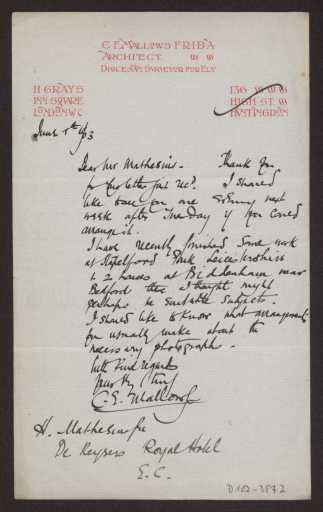 C E MALLOWS F R I B A
ARCHITECT
DIOCESAN SURVEYOR FOR ELY
11 GRAYS
INN SQUARE
LONDON W C
136
HIGH ST.
HUNTINGDON
June
Dear Mr Mathesius - Thank you
for your letter just rec?. I should
like
week after Thursday if you cared
arrange it.
I have recently finished some work
at Stapleford Park Leicestershire
& 2 houses at Biddenham near
Bedford that I thought might
perhaps be suitable subjects.
I should like to know what arrangements
you usually make about the
necessary photographs.
With kind regards
Yours
C. E. Mallows
H. Mathesius Esq
De Keysers Royal Hotel
E. C.
D 102-3872